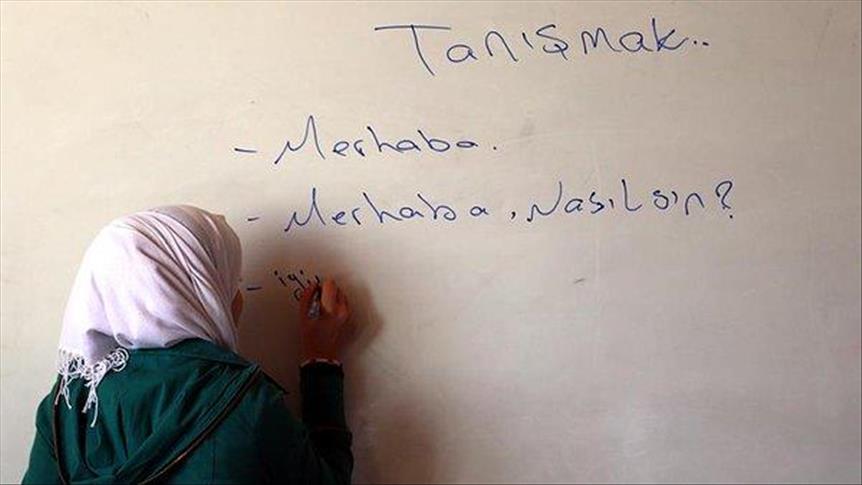 Tanışmak..
- Merhaba.
- Merhaba, Nasılsın?
- iyi